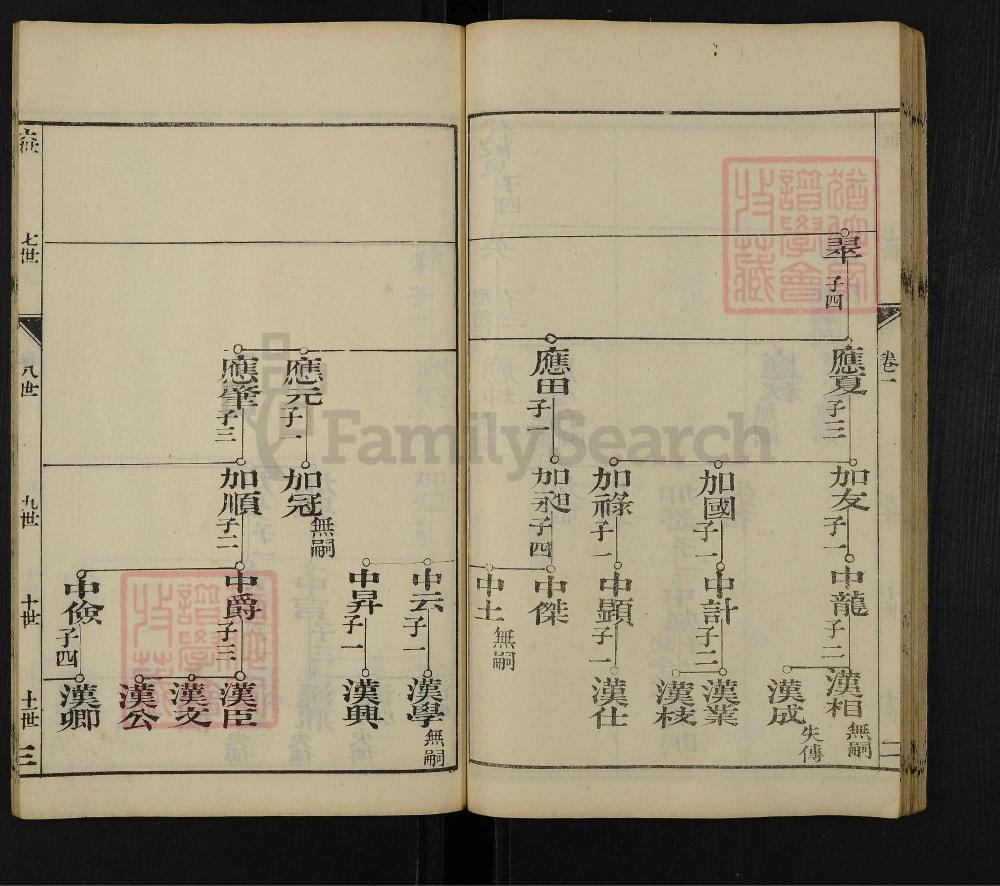 卷一
二
翠 子四
應夏 子三
加友 子一
中龍 子二
漢相 無嗣
漢成 失傳
加國 子一
中計 子二
漢業
漢枝
加祿 子一
中顯 子一
漢仕
應田 子一
加昶 子四
中傑
中土 無嗣
中云 子一
漢學 無嗣
中昇 子一
漢興
應元 子一
加冠 無嗣
應肇 子三
加順 子二
中爵 子三
漢臣
漢文
漢公
中儉 子四
漢卿
六世
七世
八世
九世
十世
十一世
三
FamilySearch